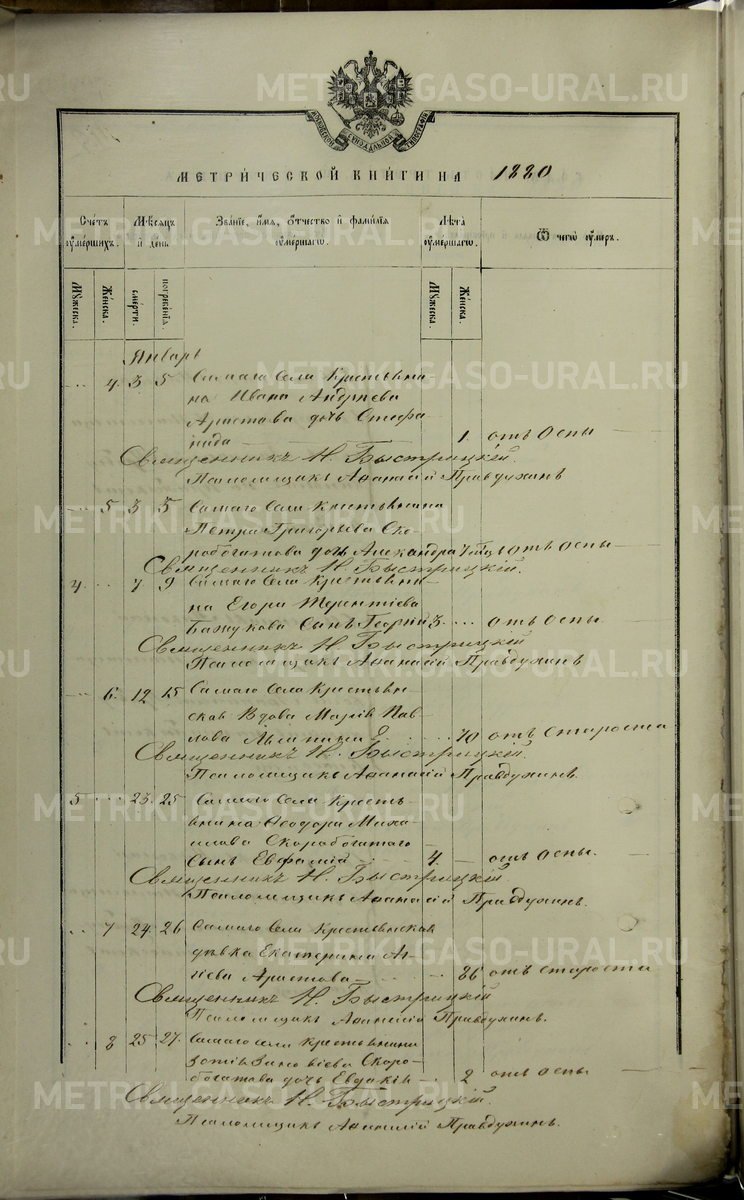 МЕТРИЧЕСКОЙ КНИГИ НА 1880
Счетъ умершихъ. Мѣсяцъ и день Званіе, имя, отчество и фамилія умершаго. Лѣта умершаго. Отъ чего умеръ.
Мужеска. Женска. смерти. погребенія. Мужеска. Женска.
Январь
4. 3 5 Самаго Села Крестьяни-
на Ивана Андреева
Аристова дочь Стефа-
нида 1 отъ Оспы
Священникъ Н. Быстрицкій.
Псаломщикъ Афанасій Правдухинъ
5 3 5 Самаго Села Крестьянина
Петра Григорьева Ско-
робогатова дочь Александра 7 мѣц. отъ Оспы
Священникъ Н. Быстрицкій.
4. 7 9 Самаго Села Крестьяни-
на Егора Терентіева
Бажукова Сынъ Георгій 3 отъ Оспы.
Священникъ Н. Быстрицкій
Псаломщикъ Афанасій Правдухинъ
6. 12 15 Самаго Села Крестьян-
ская Вдова Марія Пав-
лова 70 отъ Старости
Священникъ Н. Быстрицкій.
Псаломщикъ Афанасій Правдухинъ.
5 23. 25 Самаго Села Кресть-
янина Ѳеодора Миха-
илова Скоробогатаго
Сынъ Евфимій 4. отъ Оспы.
Священникъ Н. Быстрицкій
Псаломщикъ Афанасій Правдухинъ.
7 24. 26 Самаго Села Крестьянская
дѣвка Екатерина Аг-
ѣева Аристова 86 отъ Старости
Священникъ Н. Быстрицкій
Псаломщикъ Афанасій Правдухинъ.
8 25 27. Самаго Села Крестьянина
Зотія Зиновіева Скоро-
богатова дочь Евдокія 2 отъ Оспы
Священникъ Н. Быстрицкій.
Псаломщикъ Афанасій Правдухинъ.
METRIKI.GASO-URAL.RU